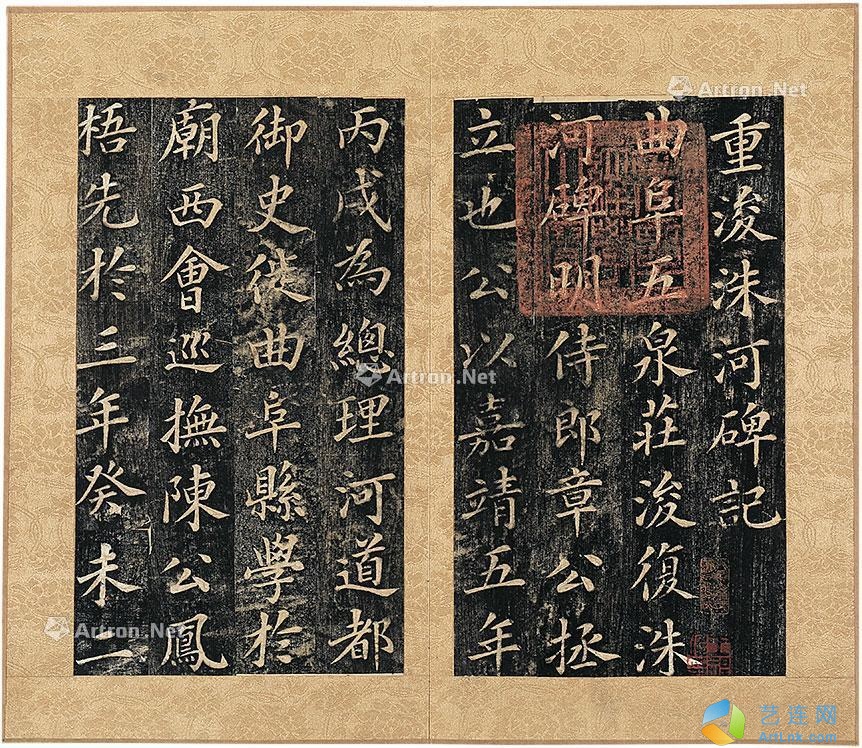 重浚洙河碑記
曲阜五泉莊浚復洙
河碑明侍郎章公拯
立也公以嘉靖五年
丙戌為總理河道都
御史徙曲阜縣學於
廟西會巡撫陳公鳳
梧先於三年癸未一
Artron.Net
Artron.Net
Artron.Net
艺连网
Artlnk.com